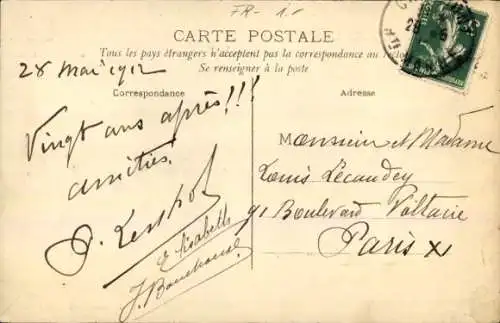 FR- 1.-
CARTE POSTALE
Tous les pays étrangers n'acceptent pas la correspondance au
Se renseigner à la poste
28 mai 1912
Correspondance
Adresse
Vingt ans après!!!
amitiés.
Elisabeth
J.
Monsieur et Madame
Louis Lécaudey
91 Boulevard Voltaire
Paris XI